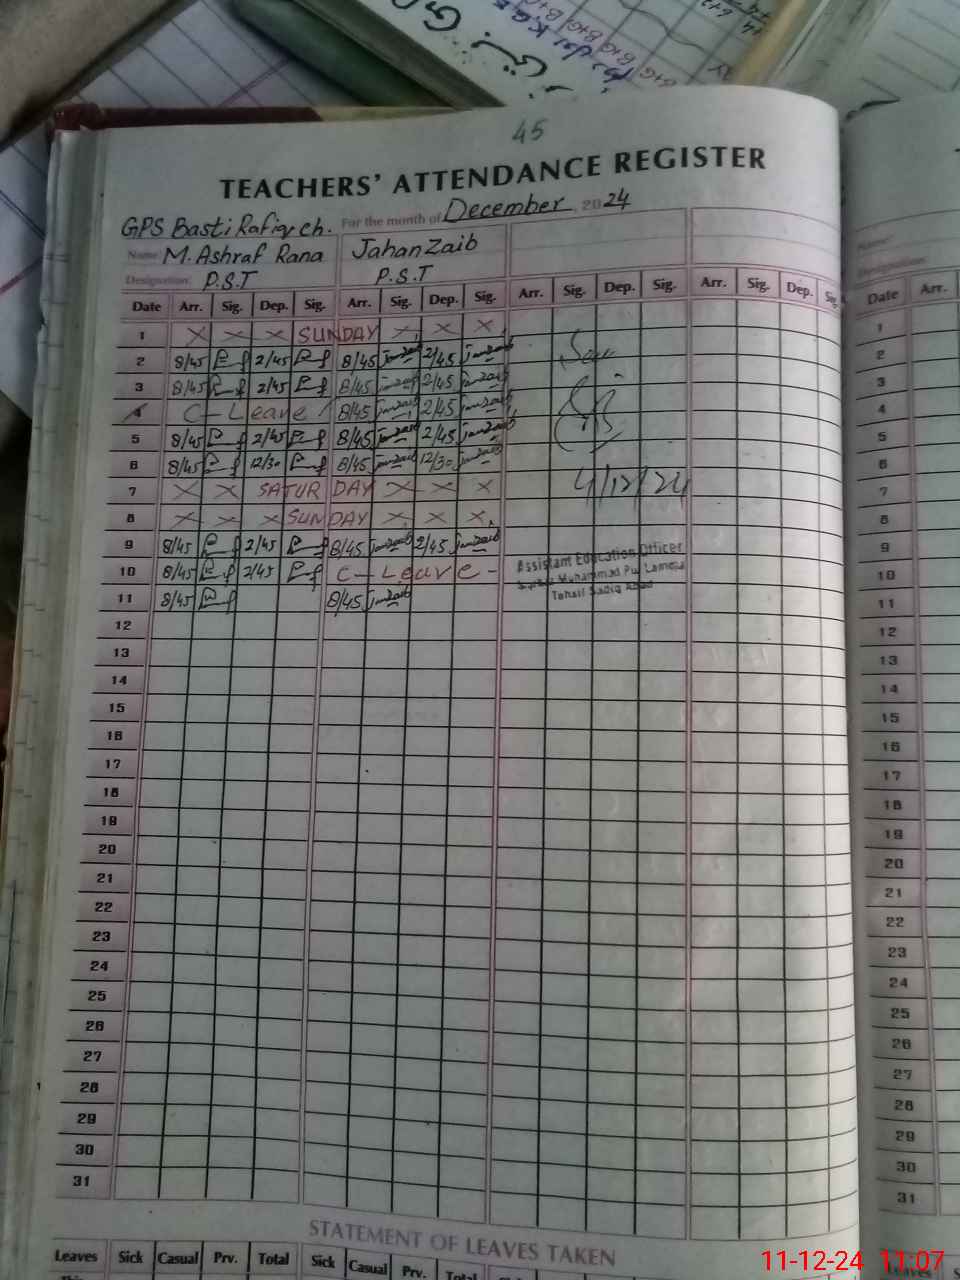 45
TEACHERS' ATTENDANCE REGISTER
GPS Basti Rafiq ch. For the month of December, 2024
Name M. Ashraf Rana JahanZaib
Designation: P.S.T P.S.T
Date Arr. Sig. Dep. Sig. Arr. Sig. Dep. Sig. Arr. Sig. Dep. Sig. Arr. Sig. Dep. Sig.
1 X X X SUNDAY X X X
2 8/45 2/45 8/45 Janzaib 2/45 Janzaib
3 8/45 2/45 8/45 Janzaib 2/45 Janzaib
4 C-Leave 8/45 Janzaib 2/45 Janzaib
5 8/45 2/45 8/45 Janzaib 2/45 Janzaib
6 8/45 12/30 8/45 Janzaib 12/30 Janzaib
7 X X SATURDAY X X X 4/12/24
8 X X X SUNDAY X X X
9 8/45 2/45 8/45 Janzaib 2/45 Janzaib
10 8/45 2/45 C-Leave-
11 8/45 8/45 Janzaib
Assistant Education Officer
Muhammad Pu
Tehsil Sadiq Abad
12
13
14
15
16
17
18
19
20
21
22
23
24
25
26
27
28
29
30
31
STATEMENT OF LEAVES TAKEN
Leaves Sick Casual Prv. Total Sick Casual Prv. Total
Name:
Date Arr.
1
2
3
4
5
6
7
8
9
10
11
12
13
14
15
16
17
18
19
20
21
22
23
24
25
26
27
28
29
30
31
Leaves
11-12-24 11:07